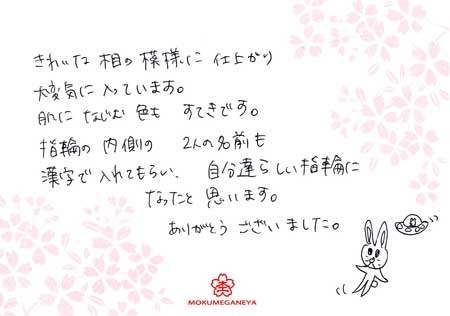 きれいな 相の 模様に 仕上がり
大変気に 入っています。
肌に なじむ 色も すてきです。
指輪の 内側の 2人の名前も
漢字で 入れてもらい、 自分達らしい指輪に
なったと 思います。
ありがとう ございました。
MOKUMEGANEYA